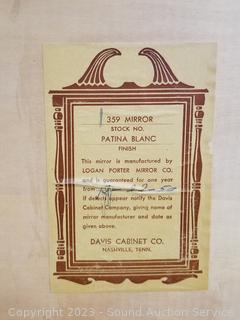 359 MIRROR
STOCK NO.
PATINA BLANC
FINISH
This mirror is manufactured by
LOGAN PORTER MIRROR CO.
and is guaranteed for one year
from
If defects appear notify the Davis
Cabinet Company, giving name of
mirror manufacturer and date as
given above.
DAVIS CABINET CO.
NASHVILLE, TENN.
Copyright 2023 - Sound Auction Service